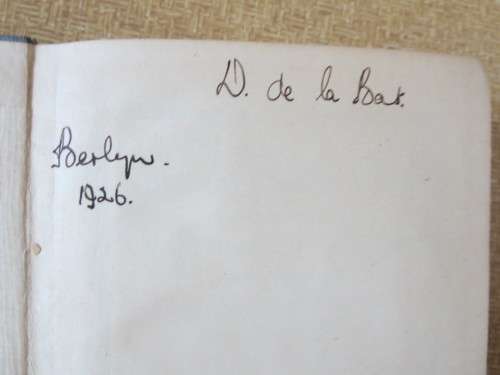 D. de la Bat.
Berlyn.
1926.